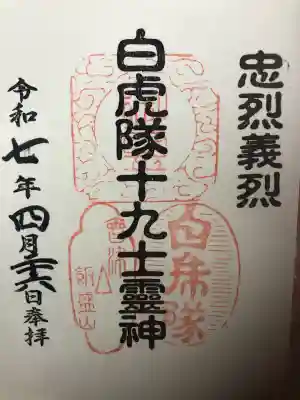 忠烈義烈
白虎隊十九士靈神
令和七年四月廿六日奉拝
白虎隊
會津
飯盛山